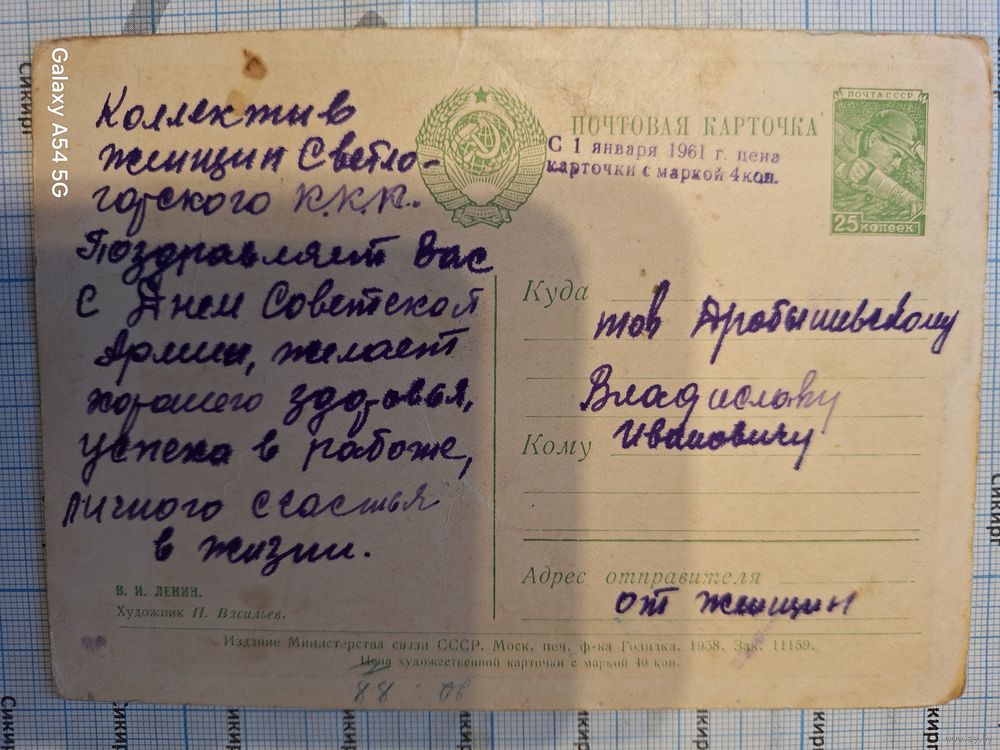 Galaxy A54 5G
Коллектив
женщин Светло-
горского К.К.К.
Поздравляет Вас
с Днем Советской
Армии, желает
хорошего здоровья,
успеха в работе,
личного счастья
в жизни.
В. И. ЛЕНИН.
Художник П. Васильев.
ПОЧТОВАЯ КАРТОЧКА
С 1 января 1961 г. цена
карточки с маркой 4коп.
ПОЧТА СССР
25 КОПЕЕК
Куда
тов Дробышевскому
Владиславу
Кому Ивановичу
Адрес отправителя
от женщин
Издание Министерства связи СССР. Моск. печ. ф-ка Гознака. 1958. Зак. 11159.
Цена художественной карточки с маркой 40 коп.